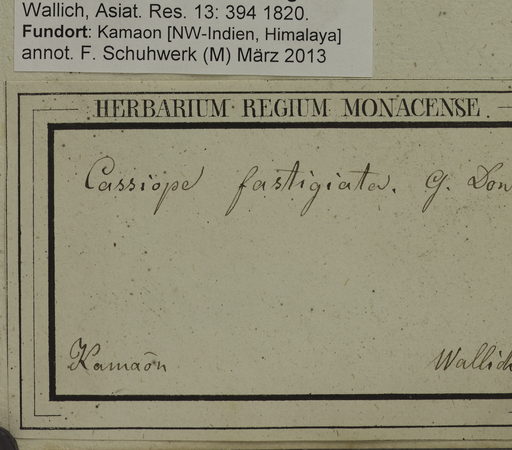 Wallich, Asiat. Res. 13: 394 1820.
Fundort: Kamaon [NW-Indien, Himalaya]
annot. F. Schuhwerk (M) März 2013
HERBARIUM REGIUM MONACENSE
Cassiope fastigiata. G. Don
Kamaōn Wallich